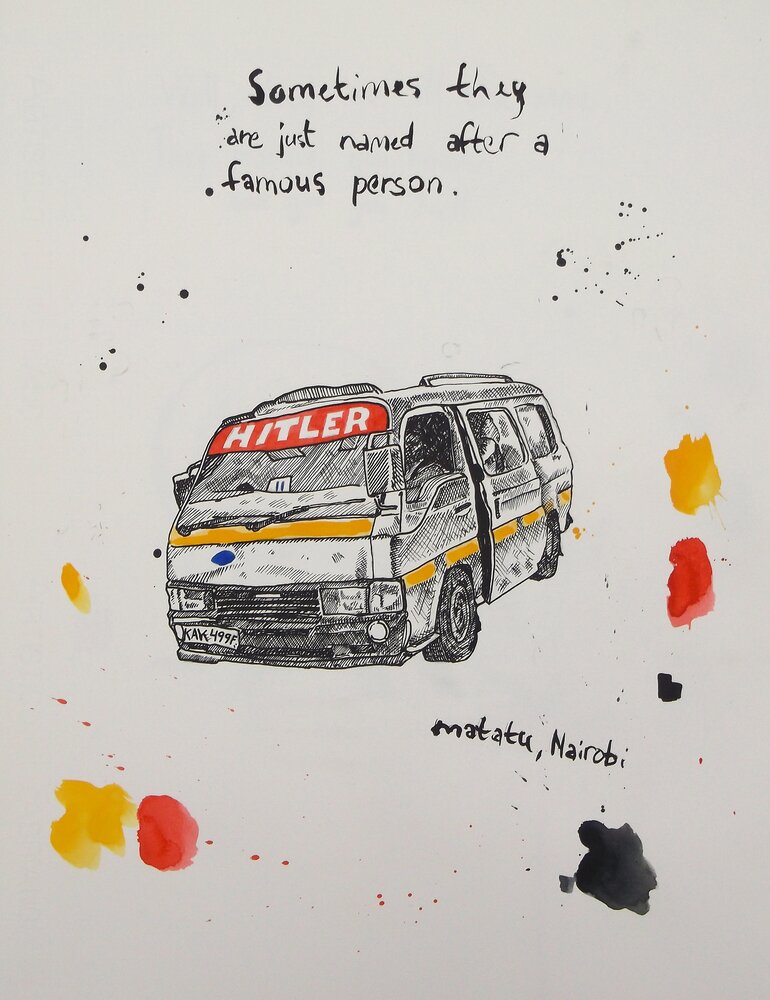 Sometimes they
are just named after a
famous person.
HITLER
KAK-499F
matatu, Nairobi